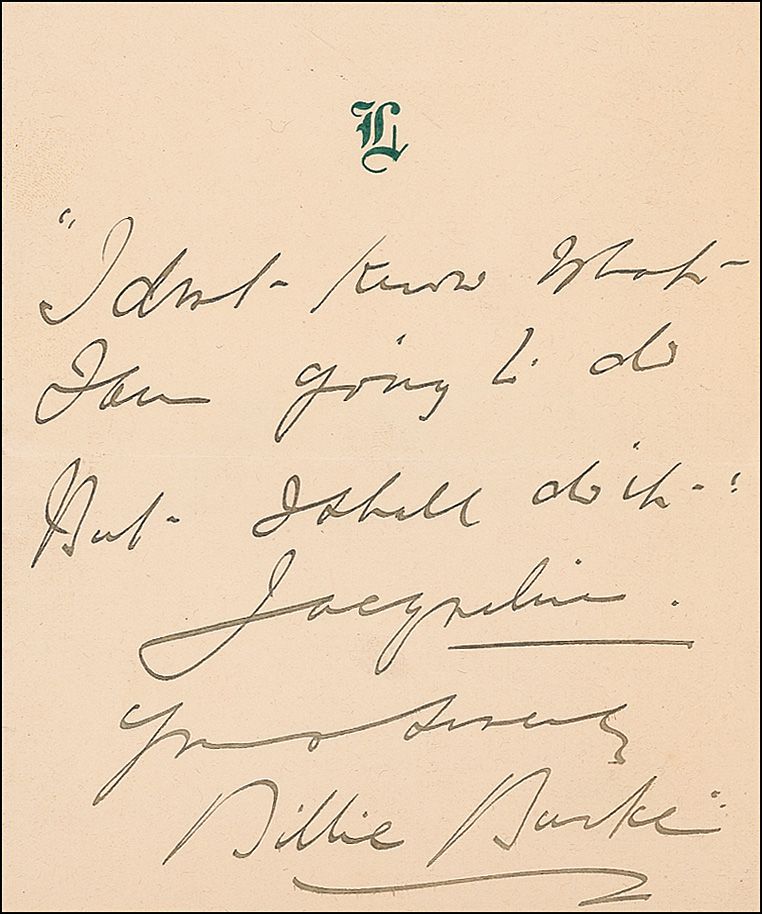 L
"I don't - know what -
I am going to do
But - I shall do it -"
Jacqueline.
Yours sincerely
Billie Burke